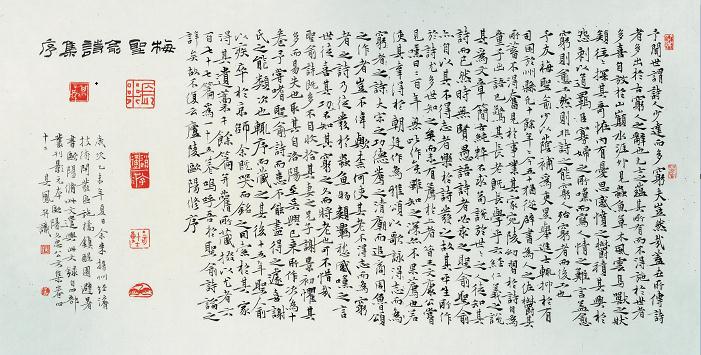 予聞世謂詩人少達而多窮夫豈然哉蓋世所傳詩
者多出於古窮人之辭也凡士之蘊其所有而不得施於世者
多喜自放於山巔水涯外見蟲魚草木風雲鳥獸之狀
類往往探其奇怪內有憂思感憤之鬱積其興於
怨刺以道羈臣寡婦之所嘆而寫人情之難言蓋愈
窮則愈工然則非詩之能窮人殆窮者而後工也
予友梅聖俞少以蔭補為吏累舉進士輒抑於有
司困於州縣凡十餘年年今五十猶從辟書為人之佐鬱其
所蓄不得奮見於事業其家宛陵幼習於詩自為
童子出語已驚其長老既長學乎六經仁義之說
其為文章簡古純粹不求苟說於世世之人徒知其
詩而已然時無賢愚語詩者必求之聖俞聖俞
亦自以其不得志者樂於詩而發之故其平生所作
於詩尤多世既知之矣而未有薦於上者昔王文康公嘗
見而嘆曰二百年無此作矣雖知之深亦不果薦也若
使其幸得於朝廷作為雅頌以歌詠得志而為
窮者之詩大宗之功德薦之清廟而追商周魯頌
之作者豈不偉歟奈何使其老不得志而為窮
者之詩乃徒發於蟲魚物類羈愁感嘆之言
世徒喜其工不知其窮之久而將老也可不惜哉
聖俞詩既多不自收拾其妻之兄子謝景初懼其
多而易失也取其自洛陽至於吳興已來所作次為十
卷予嘗嗜聖俞詩而患不能盡得之遽喜謝
氏之能類次也輒序而藏之其後十五年聖俞
以疾卒於京師余既哭而銘之因索於其家
得其遺藁千餘篇并舊所藏掇其尤者六
百七十七篇為一十五卷嗚呼吾於聖俞詩論之
詳矣故不復云廬陵歐陽修序
梅聖俞詩集序
年夏日余來揚州經濟
技術開發區
書歐陽脩此文錄自四部
叢刊 歐陽文忠公文集卷四
十二